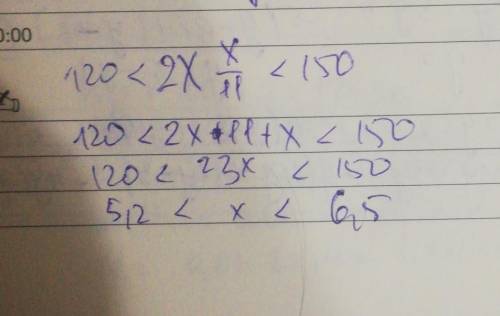 0:00
120 < 2x x/11 < 150
120 < 2x*11+x < 150
120 < 23x < 150
5,2 < x < 6,5